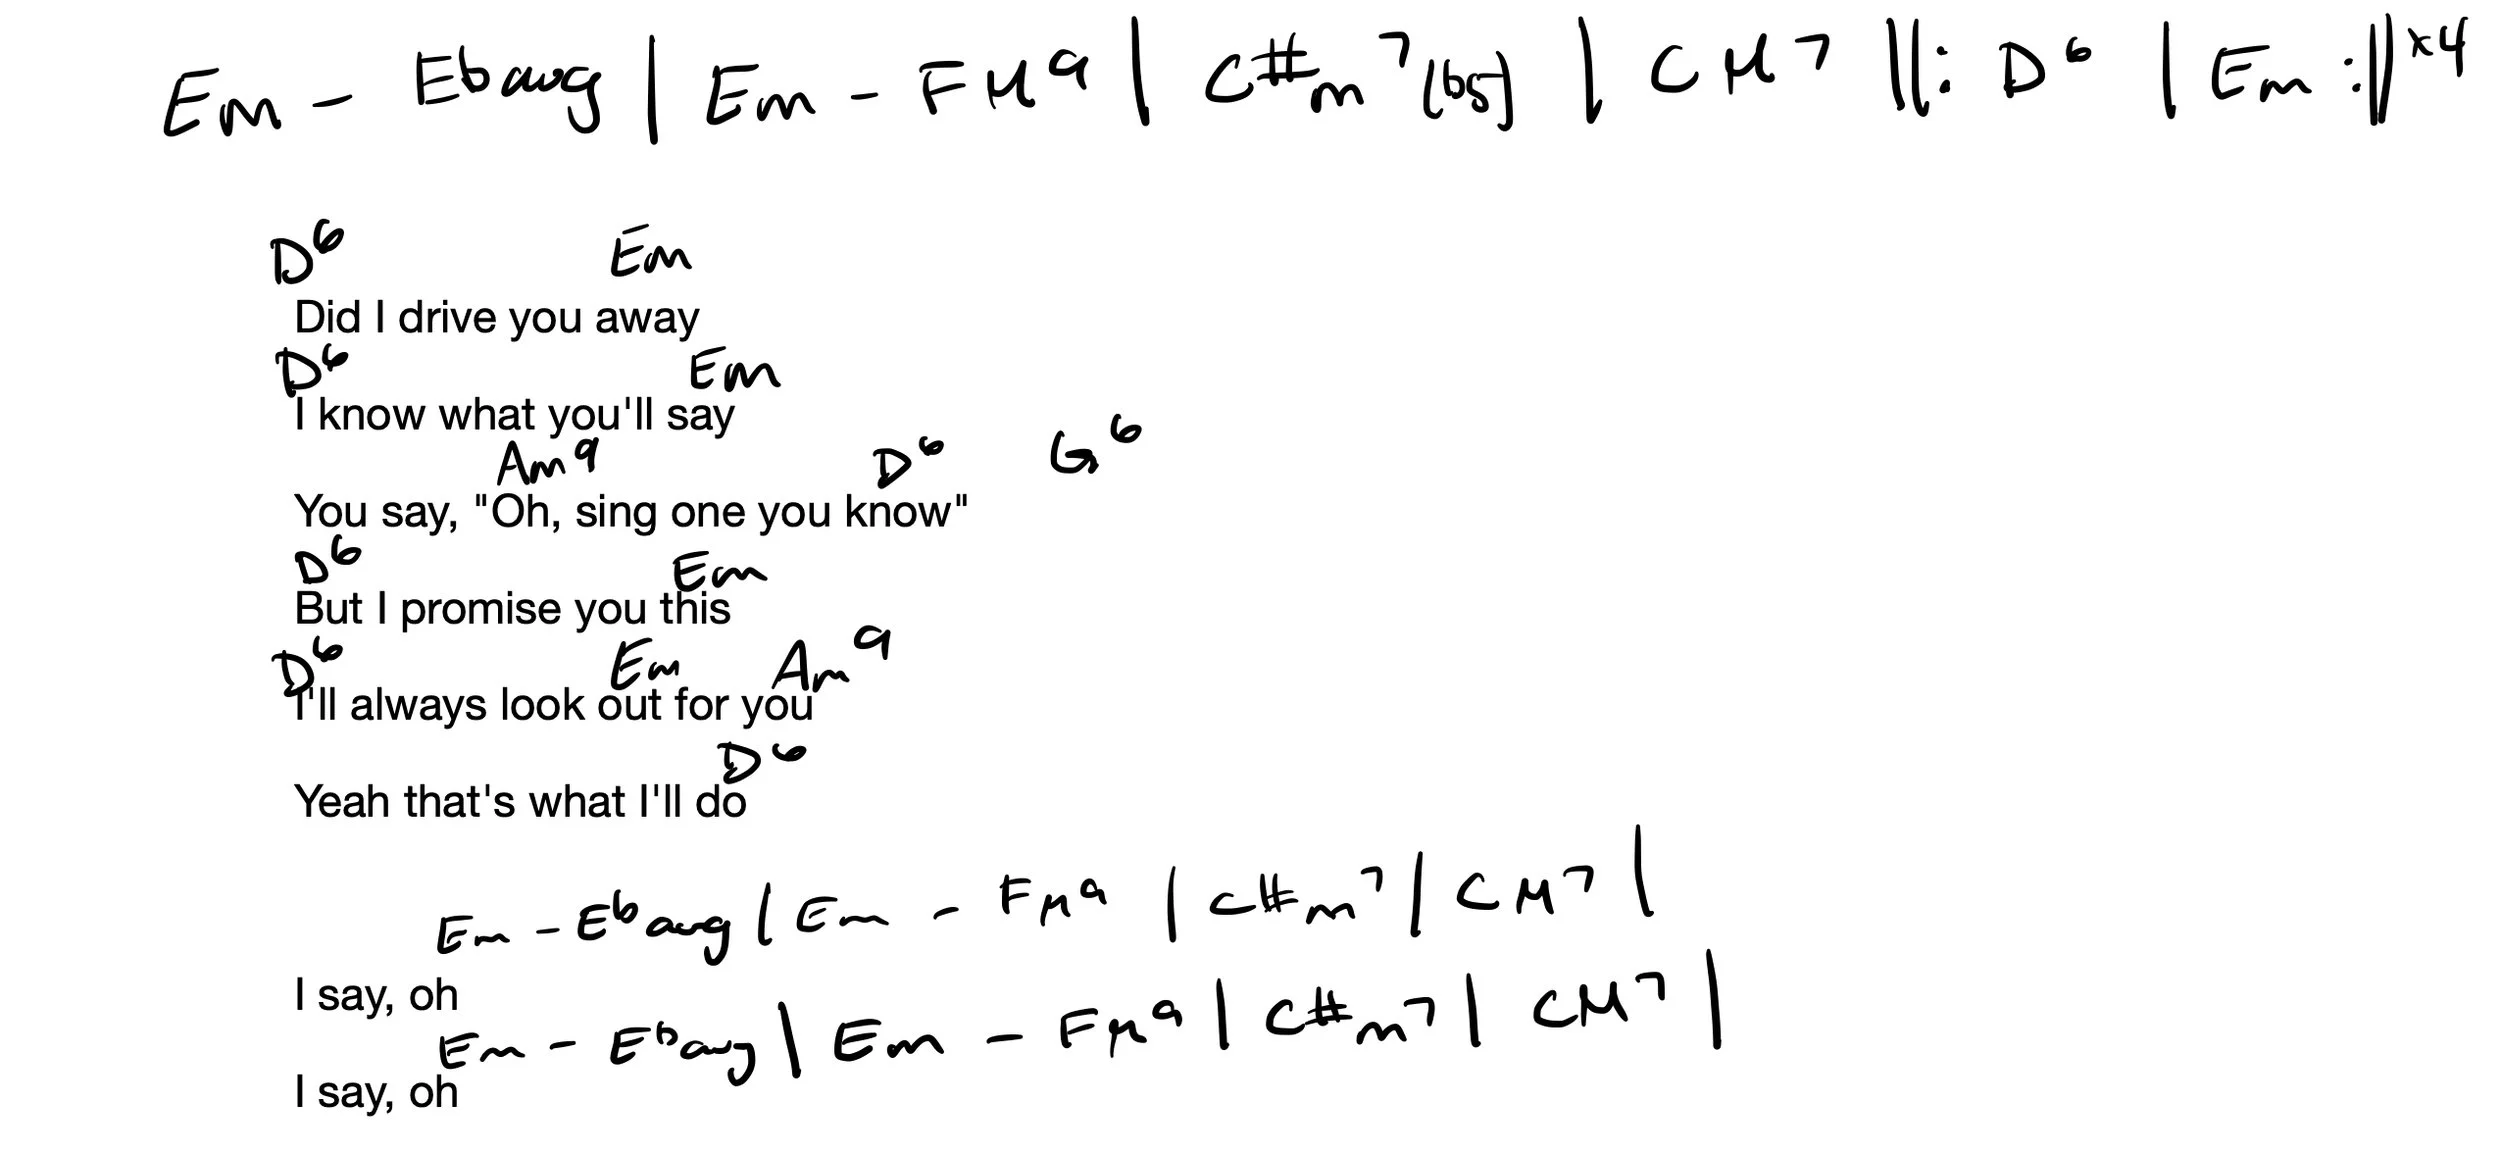 Em - Ebaug | Em - FM9 | C#m7(b5) | CM7 ||: D6 | Em :|| x4
D6 Em
Did I drive you away
D6 Em
I know what you'll say
Am9 D6 G6
You say, "Oh, sing one you know"
D6 Em
But I promise you this
D6 Em Am9
I'll always look out for you
D6
Yeah that's what I'll do
Em - Ebaug | Em - FM9 | C#m7 | CM7 |
I say, oh
Em - Ebaug | Em - FM9 | C#m7 | CM7 |
I say, oh